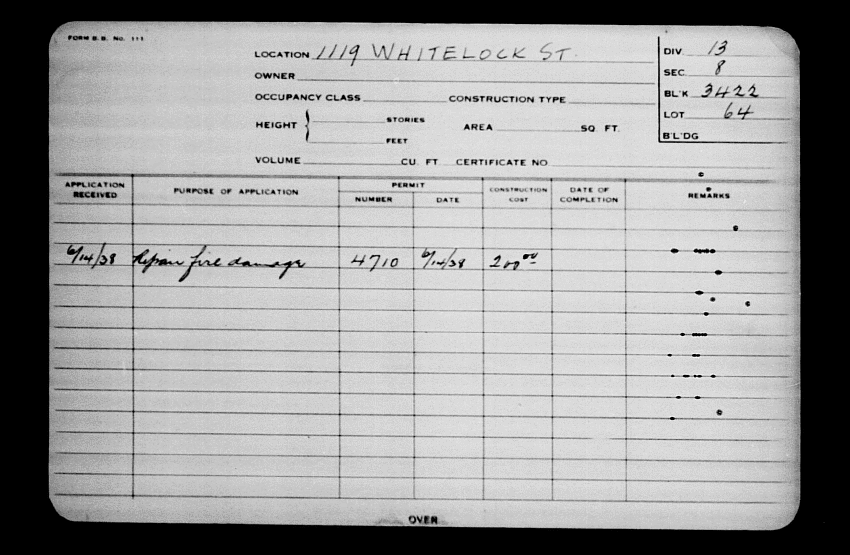 FORM B.B. No. 111
LOCATION 1119 WHITELOCK ST.
OWNER
OCCUPANCY CLASS CONSTRUCTION TYPE
HEIGHT { STORIES AREA SQ. FT.
FEET
VOLUME CU. FT CERTIFICATE NO
DIV. 13
SEC. 8
BL'K 3422
LOT 64
B'L'DG
APPLICATION RECEIVED PURPOSE OF APPLICATION PERMIT NUMBER DATE CONSTRUCTION COST DATE OF COMPLETION REMARKS
6/14/38 Repair fire damage 4710 6/14/38 200 00
OVER